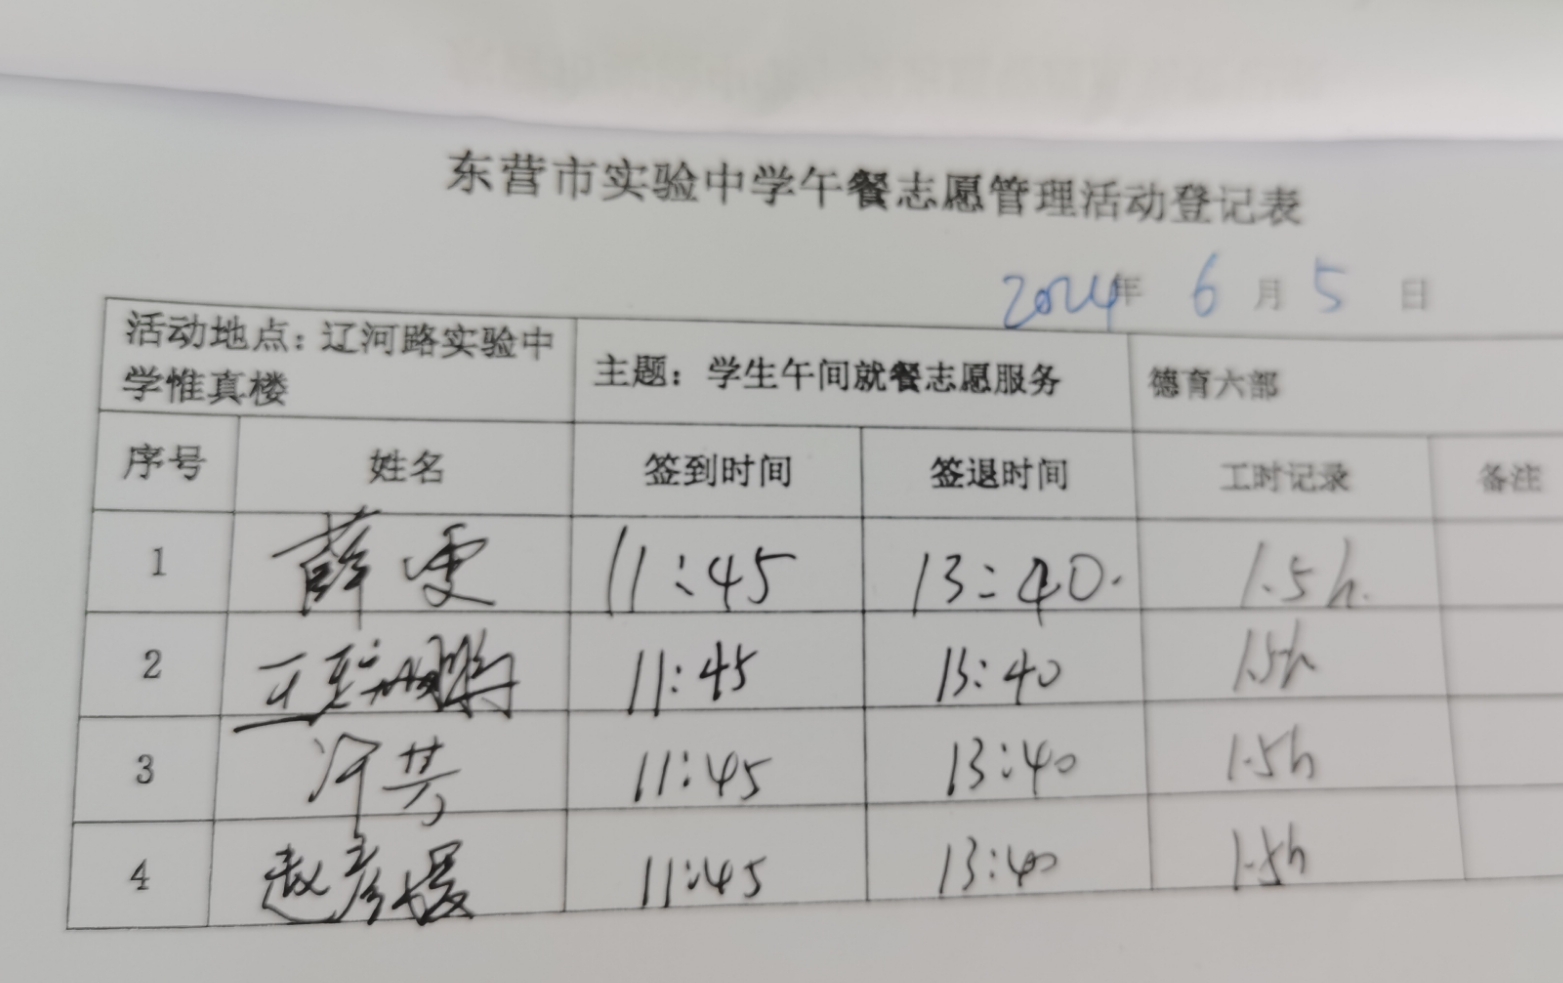 东营市实验中学午餐志愿管理活动登记表
2024年 6 月 5 日
活动地点：辽河路实验中
学惟真楼
主题：学生午间就餐志愿服务
德育六部
序号 姓名 签到时间 签退时间 工时记录 备注
1 薛雯 11:45 13:40. 1.5h.
2 11:45 13:40 1.5h
3 11:45 13:40 1.5h
4 赵彦媛 11:45 13:40 1.5h